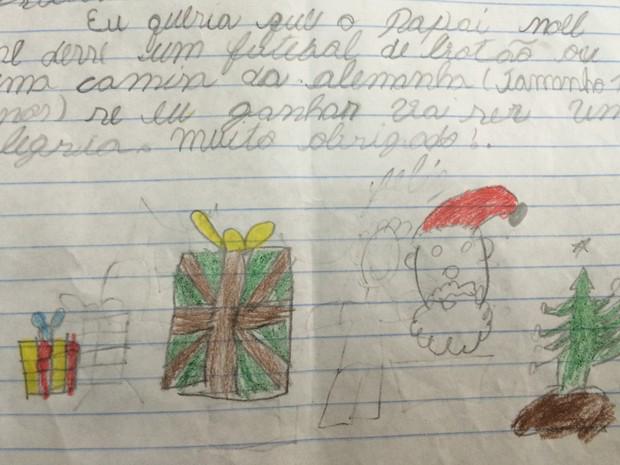 Eu queria que o Papai noel
me desse um futebal de botão ou
uma camisa da alemanha (Tamanho 1
anos) se eu ganhar vai ser um
alegria. Muito obrigado!.